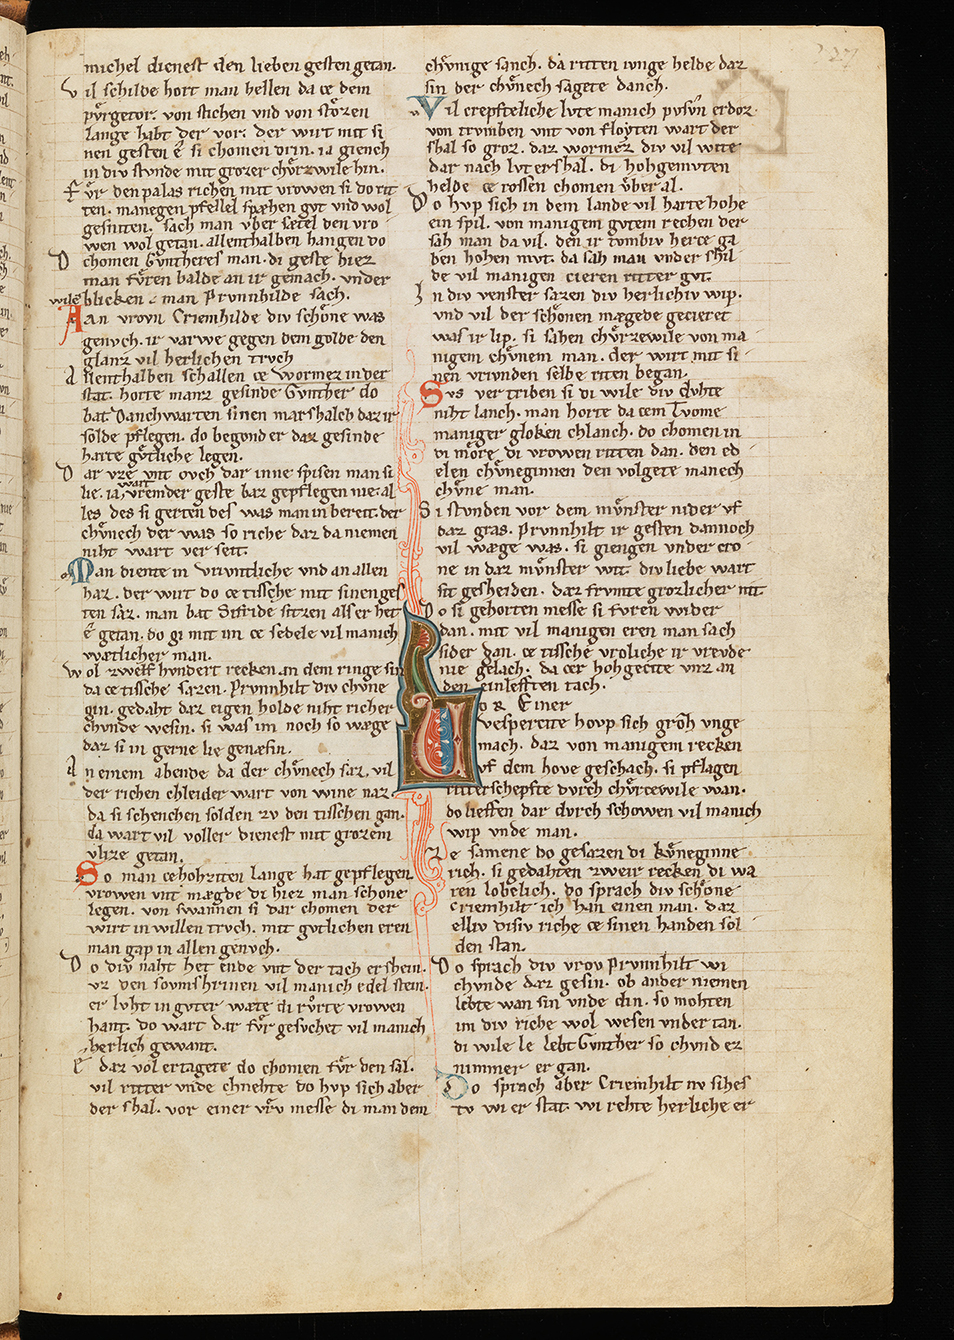 michel dienest den lieben gesten getan.
vil schilde hort man hellen da ce dem
pvrgetor. von stichen vnd von stozen
lange habt der vor. der wirt mit si
nen gesten e si chomen drin. ia giench
in div stvnde mit grozer chvrzwile hin.
Fvr den palas richen mit vrowen si do rit
ten. manegen pfellel spæhen gvt vnd wol
gesniten. sach man vber sætel den vro
wen wol getan. allenthalben hangen do
Do chomen Gvntheres man. di geste hiez
man fvren balde an ir gemach. vnder
wile blicken man Prvnnhilde sach.
An vrovn Criemhilde div schone was
genvch. ir varwe gegen dem golde den
glanz vil herlichen trvch
Allenthalben schallen ce wormez in der
stat. horte manz gesinde Gvnther do
bat. Danchwarten sinen marshalch daz ir
solde pflegen. do begond er daz gesinde
harte gvtliche legen.
Dar vze vnt ovch dar inne spisen man si
lie. ia wart vremder geste baz gepflegen nie. al
les des si gerten des was man in bereit. der
chvnech der was so riche daz da niemen
niht wart ver seit.
Man diente in vrivntliche vnd an allen
haz. der wirt do ce tische mit sinen ges
ten saz. man bat Sifride sitzen als er het
e getan. do gi mit im ce sedele vil manich
wætlicher man.
Wol zwelf hvndert recken an dem ringe sin
da ce tissche sazen. Prvnnhilt div chvne
gin. gedaht daz eigen holde niht richer
chvnde wesin. si was im noch so wæge
daz si in gerne lie genæsin.
An einem abende da der chvnech saz. vil
der richen chleider wart von wine naz.
da si schenchen solden zv den tisschen gan.
da wart vil voller dienest mit grozem
vlize getan.
So man ce hohziten lange hat gepflegen
vrowen vnt mægde di hiez man schone
legen. von swannen si dar chomen der
wirt in willen trvch. mit gvtlichen eren
man gap in allen genvch.
Do div naht het ende vnt der tach ershein.
vz den sovmshrinen vil manich edel stein.
er lvht in gvter wæte di rvrte vrowen
hant. do wart dar fvr gesvchet vil manich
herlich gewant.
E daz vol ertagete do chomen fvr den sal.
vil ritter vnde chnehte do hvp sich aber
der shal. vor einer vrv messe di man dem
chvnige sanch. da ritten ivnge helde daz
sin der chvnech sagete danch.
Vil crepfteliche lvte manich pvsvn erdoz.
von trvmben vnt von floyten wart der
shal so groz. daz wormez div vil wite
dar nach lvt ershal. di hohgemvten
helde ce rossen chomen vber al.
Do hvp sich in dem lande vil harte hohe
ein spil. von manigem gvtem rechen der
sah man da vil. den ir tvmbiv herce ga
ben hohen mvt. da sah man vnder shil
de vil manigen cieren ritter gvt.
In div venster sazen div herlichiv wip.
vnd vil der schonen mægede gecieret
was ir lip. si sahen chvrzewile von ma
nigem chvnem man. der wirt mit si
nen vrivnden selbe riten began.
Svs ver triben si di wile div dvhte
niht lanch. man horte da cem tvome
maniger gloken chlanch. do chomen in
di more di vrowen ritten dan. den ed
elen chvneginnen den volgete manech
chvne man.
Si stvnden vor dem mvnster nider vf
daz gras. Prvnnhilt ir gesten dannoch
vil wæge was. si giengen vnder cro
ne in daz mvnster wit. div liebe wart
sit gesheiden. daz frvmte grozlicher nit
Do si gehorten messe si fvren wider
dan. mit vil manigen eren man sach
sider gan. ce tissche vroliche ir vrevde
nie gelach. da cer hohgecite vnz an
den einlefften tach.
Vor Einer
vespercite hovp sich groh vnge
mach. daz von manigem recken
vf dem hove geschach. si pflagen
ritterschepfte dvrch chvrcewile wan.
do lieffen dar dvrch schowen vil manich
wip vnde man.
Ze samene do gesazen di kvneginne
rich. si gedahten zweir recken di wa
ren lobelich. do sprach div schone
Criemhilt ich han einen man. daz
elliv disiv riche ce sinen handen sol
den stan.
Do sprach div vrov Prvnnhilt wi
chvnde daz gesin. ob ander niemen
lebte wan sin vnde din. so mohten
im div riche wol wesen vnder tan.
di wile le lebt Gvnther so chvnd ez
nimmer er gan.
Do sprach aber Criemhilt nv sihes
tv wi er stat. wi rehte herliche er